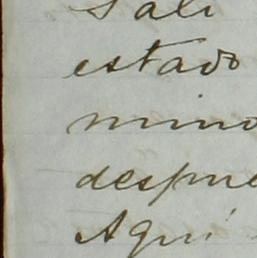 Sali
estado
mino
despue
Aqui